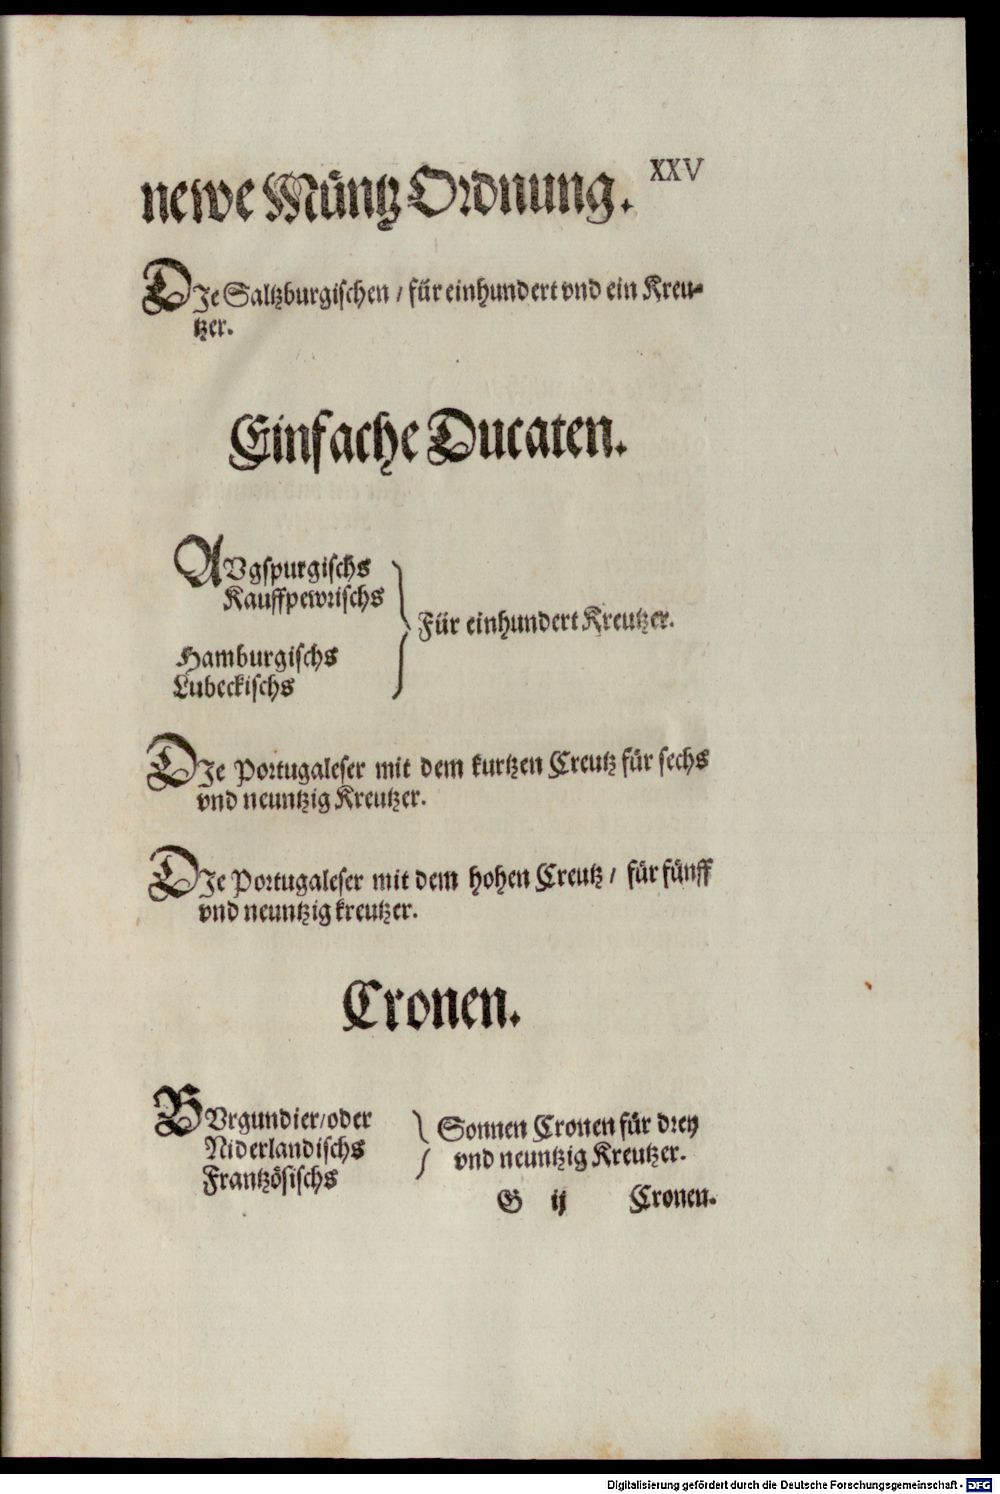 newe Müntz Ordnung. XXV
DJe Saltzburgischen / für einhundert vnd ein Kreu-
tzer.
Einfache Ducaten.
AVgspurgischs
Kauffpewrischs
Für einhundert Kreutzer.
Hamburgischs
Lubeckischs
DJe Portugaleser mit dem kurtzen Creutz für sechs
vnd neuntzig Kreutzer.
DJe Portugaleser mit dem hohen Creutz / für fünff
vnd neuntzig kreutzer.
Cronen.
BVrgundier/oder
Niderlandischs
Frantzösischs
Sonnen Cronen für drey
vnd neuntzig Kreutzer.
G ij Cronen.
Digitalisierung gefördert durch die Deutsche Forschungsgemeinschaft - DFG